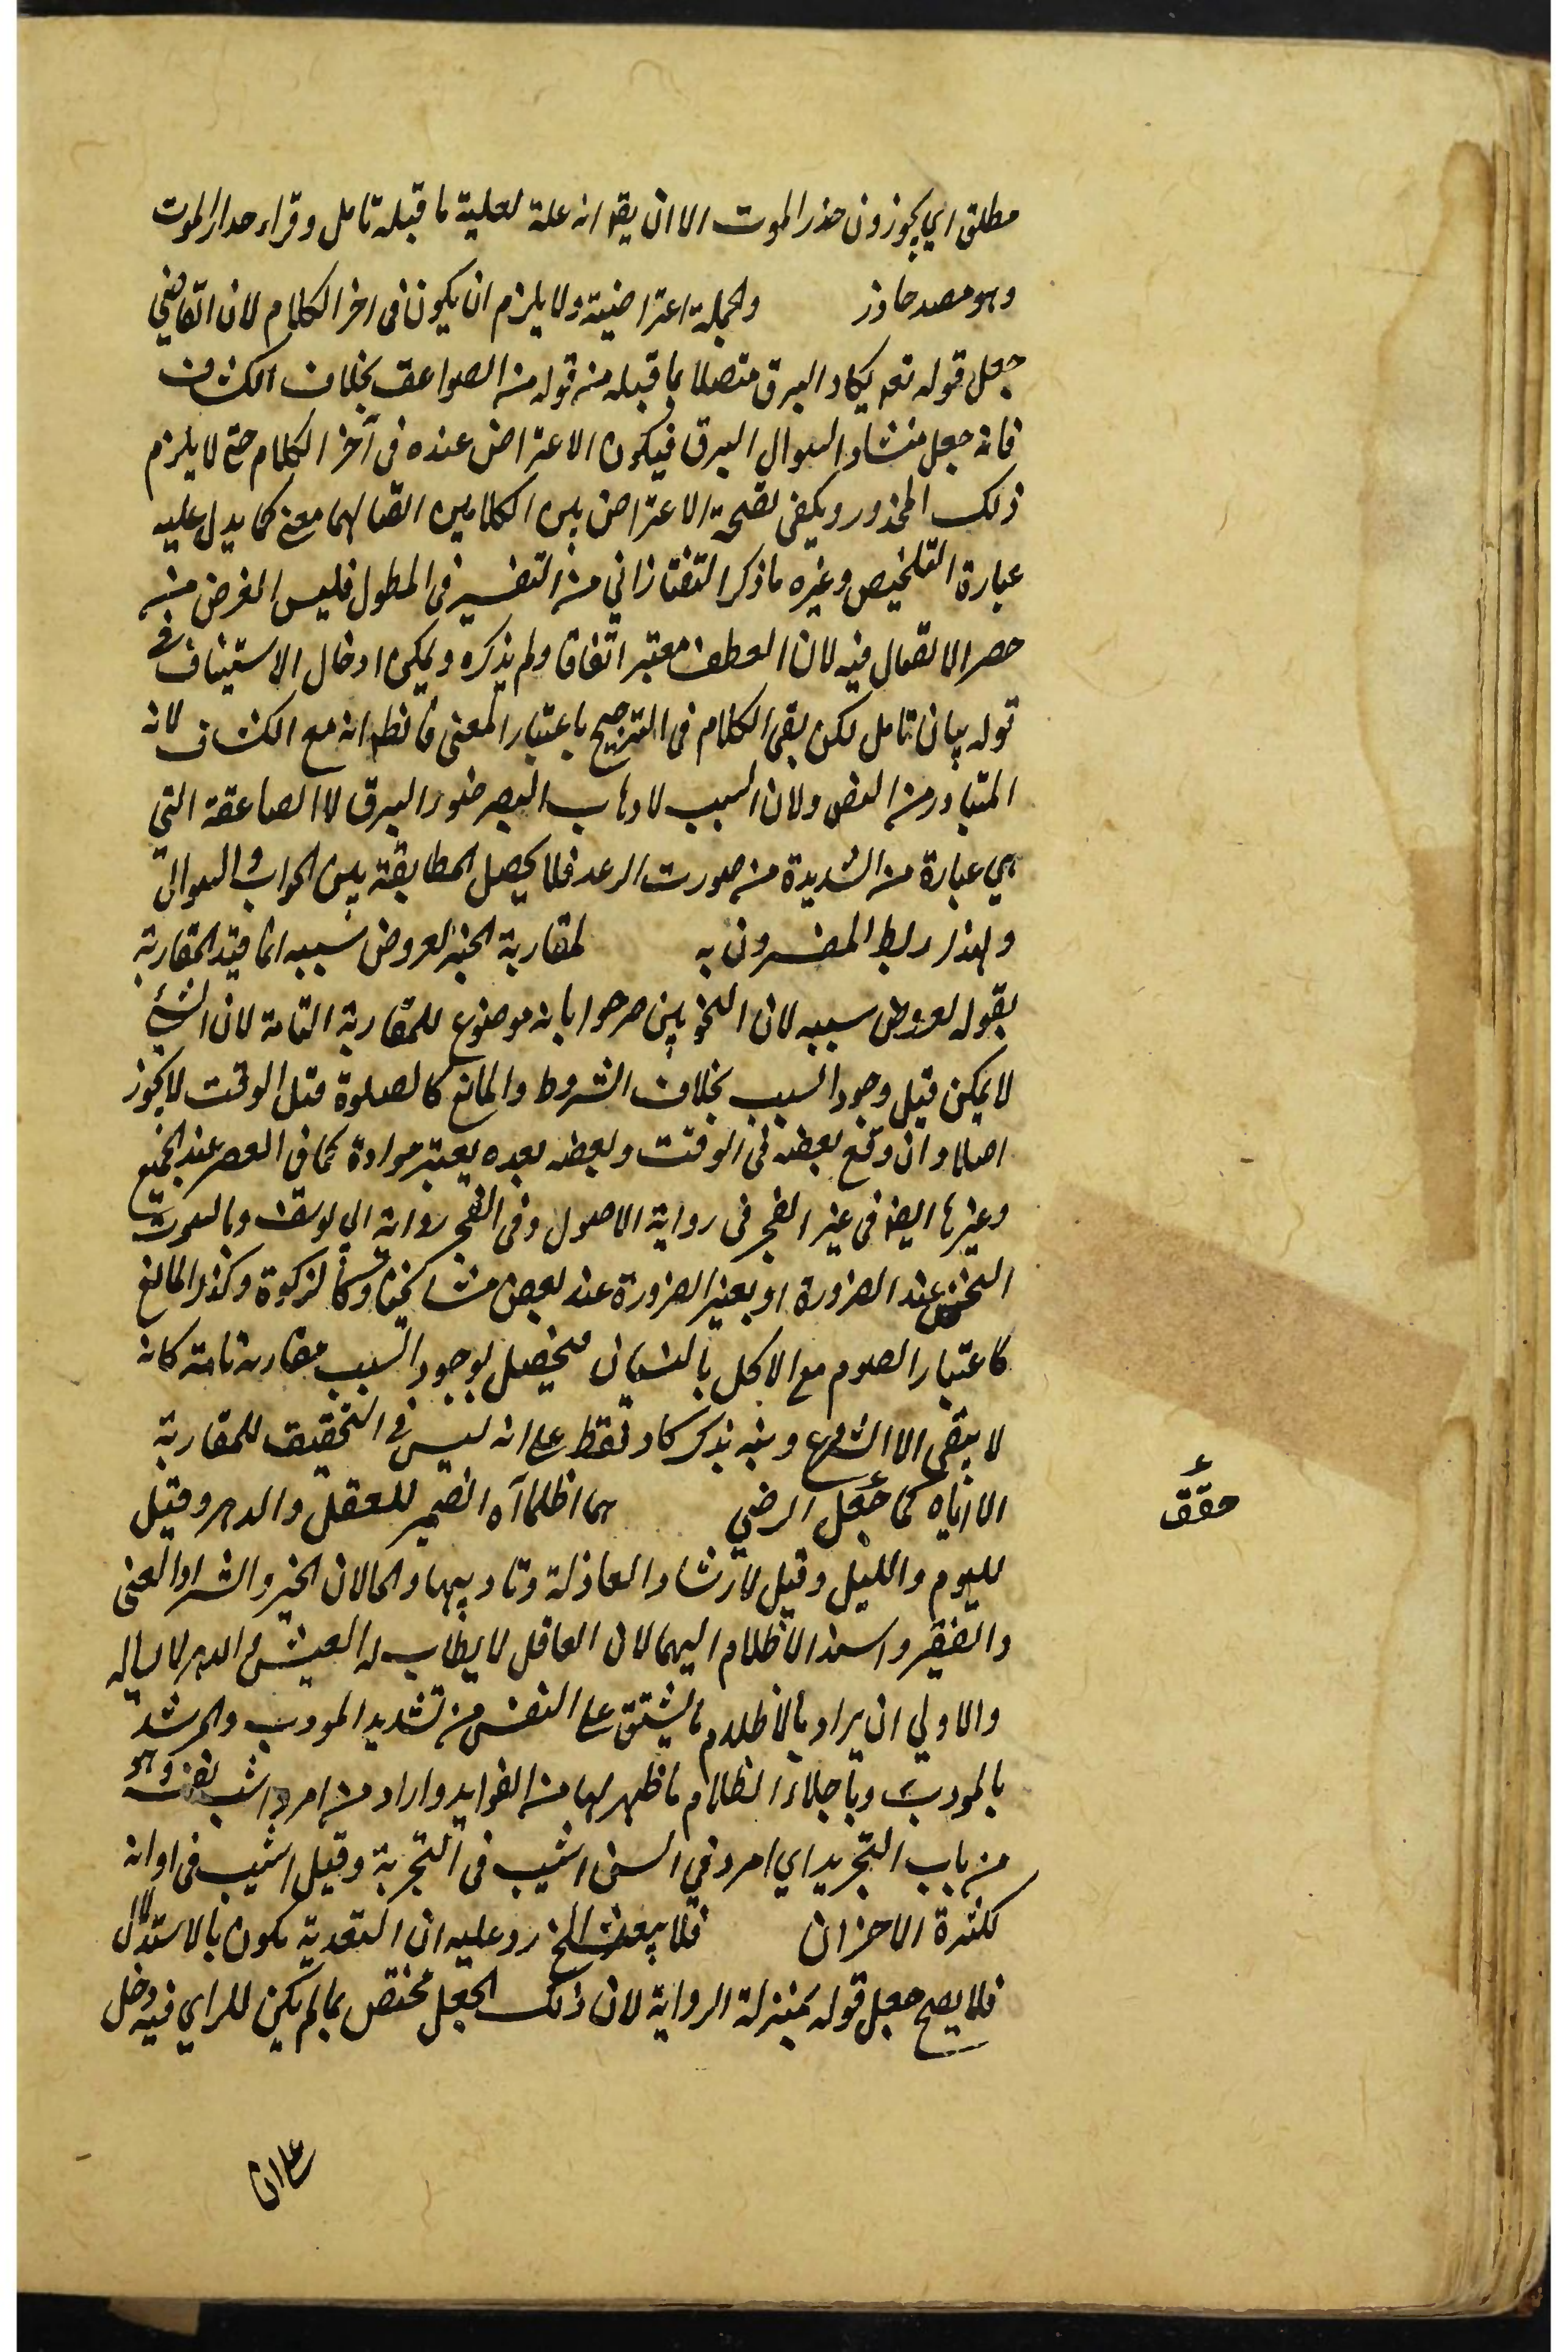 مطلق اي يجوزون حذر الموت الا ان يقه انه علة لعلية ما قبله تامل وقراء حدار الموت
وهو مصدر حاذر والجملة اعتراضية ولا يلزم ان يكون في اخر الكلام لان القاضي
جعل قوله تعه يكاد البرق متصلا بما قبله من قوله من الصواعق بخلاف الكشاف
فانه جعل منشاء السوال البرق فيكون الاعتراض عنده في آخر الكلام حتى لا يلزم
ذلك المحذور ويكفى لصحة الاعتراض بين الكلامين اتصالهما معنى كما يدل عليه
عبارة التلخيص وغيره ما ذكر التفتازاني من التفسير في المطول فليس الغرض منه
حصر الاتصال فيه لان العطف معتبر اتفاقا ولم يذكره ويمكن ادخال الاستيناف في
قوله بيان تامل لكن بقى الكلام في الترجيح باعتبار المعنى فانظه انه مع الكشاف لانه
المتبادر من النص ولان السبب لاذهاب البصر ضوء البرق لا الصاعقة التي
هي عبارة من الشديدة من صورت الرعد فلا يحصل المطابقة بين الجواب والسوال
ولهذا ربط المفسرون به لمقاربة الخبر لعروض سببه انما قيد المقاربة
بقوله لعروض سببه لان النحويين صرحوا بانه موضوع للمقاربة التامة لان الشئ
لا يمكن قبل وجود السبب بخلاف الشروط والمانع كالصلوة قبل الوقت لا يجوز
اصلا وان وقع بعضه في الوقت وبعضه بعده يعتبر موادة كما في العصر عند الجميع
وغيرها ايضا في غير الفجر في رواية الاصول وفي الفجر رواية ابي يوسف وبالثوب
النجس عند الضرورة او بغير الضرورة عند بعض مشائخنا وكالزكوة وكذا المانع
كاعتبار الصوم مع الاكل بالنسيان فيحصل لوجود السبب مقاربة تامة كانه
لا يبقى الا الشروع ونبه بذكر كاد فقط على انه ليس في التحقيق للمقاربة
الا اياه كما جعل الرضي هما اظلما آه الضمير للعقل والدهر وقيل
لليوم والليل وقيل لارشاد العاذلة وتاديبها والحالان الخير والشر او الغنى
والفقير واسند الاظلام اليهما لان العاقل لا يطاب له العيش والدهر لا يسالمه
والاولي ان يراد بالاظلام ما يشق على النفس من تشديد المودب والمرشد
بالمودب وباجلاء الظلام ما ظهر لها من الفوايد واراد من امرد اشيب نفسه وهو
من باب التجريد اي امرد في السن اشيب في التجربة وقيل اشيب في اوانه
لكثرة الاحزان فلا يبعد الخ رد عليه ان التعدية يكون بالاستدلال
فلا يصح جعل قوله بمنزلة الرواية لان ذلك الجعل مختص بما لم يكن للراي فيه دخل
حقق
على ان